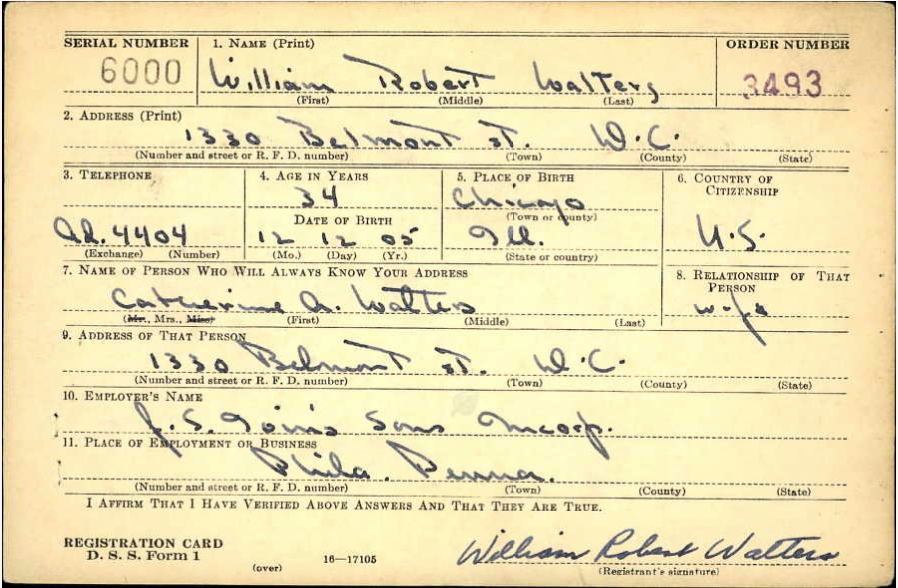 SERIAL NUMBER 1. NAME (Print) ORDER NUMBER
6000 William Robert Walters 3493
(First) (Middle) (Last)
2. ADDRESS (Print)
1330 Belmont St. D.C.
(Number and street or R. F. D. number) (Town) (County) (State)
3. TELEPHONE 4. AGE IN YEARS 5. PLACE OF BIRTH 6. COUNTRY OF CITIZENSHIP
34 Chicago
DATE OF BIRTH (Town or county)
Ad. 4404 12 12 05 Ill. U.S.
(Exchange) (Number) (Mo.) (Day) (Yr.) (State or country)
7. NAME OF PERSON WHO WILL ALWAYS KNOW YOUR ADDRESS 8. RELATIONSHIP OF THAT PERSON
Catherine A. Walters wife
(Mr., Mrs., Miss) (First) (Middle) (Last)
9. ADDRESS OF THAT PERSON
1330 Belmont St. D.C.
(Number and street or R. F. D. number) (Town) (County) (State)
10. EMPLOYER'S NAME
J. S. Sons Incorp.
11. PLACE OF EMPLOYMENT OR BUSINESS
Phila. Penna.
(Number and street or R. F. D. number) (Town) (County) (State)
I AFFIRM THAT I HAVE VERIFIED ABOVE ANSWERS AND THAT THEY ARE TRUE.
REGISTRATION CARD
D. S. S. Form 1 16—17105 William Robert Walters
(over) (Registrant's signature)